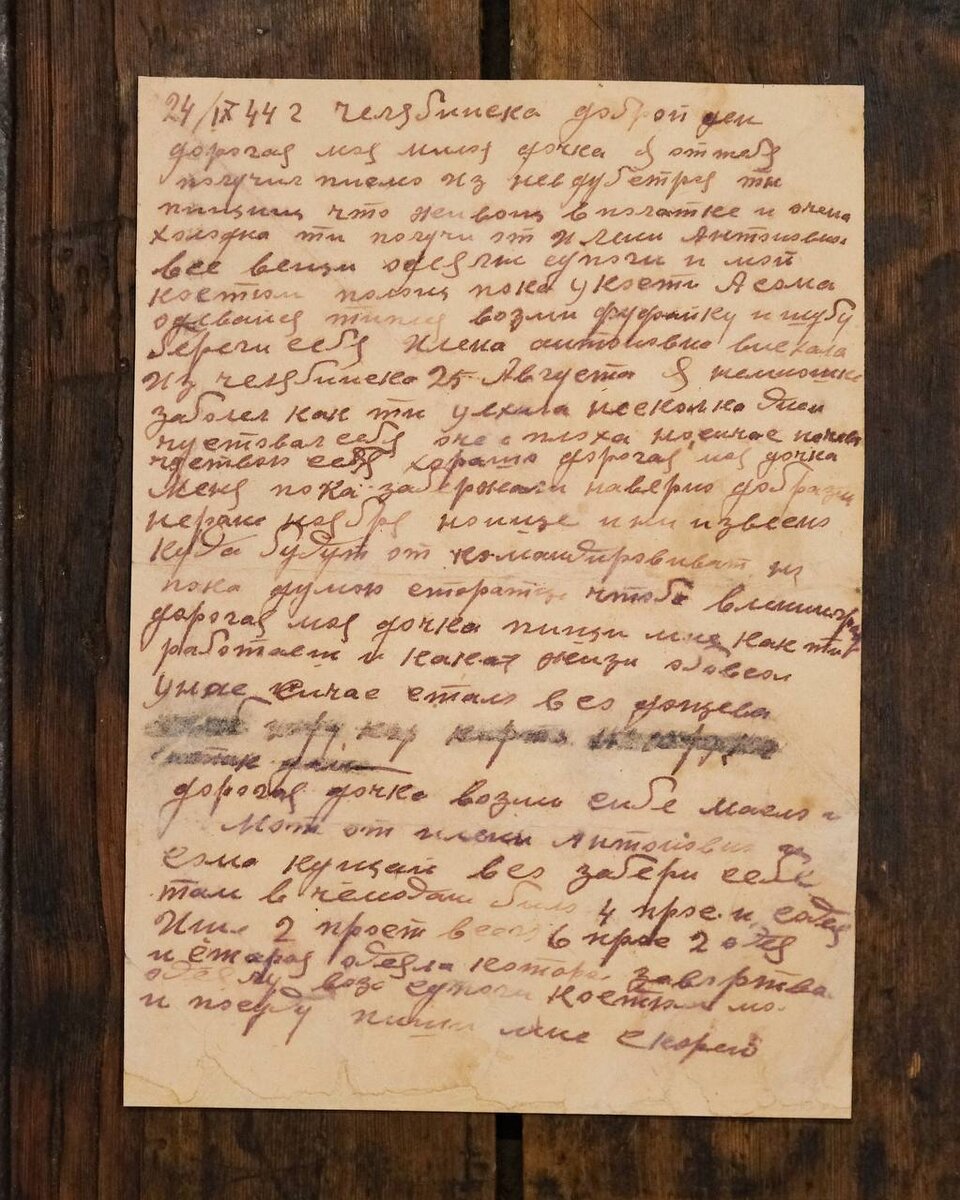 24/IX 44 г челябинска доброй ден
дорогая моя милоя дочка я от тебя
получил писмо из невдубстроя ти
пишиш что живош в полатке и очена
холодна ти получи от Илени Антоновни
все вещи одеялу супоги и мой
костюм полош пока у кости А сома
одевайся типло возми фуфайку и шубу
береги себя Илена антоновна виехала
Из челябинска 25 Августа я немношка
заболел как ти уехала несколко дней
чуствовал себя очен плоха но сичас
чуствою себя хорашо дорогая моя дочка
Меня пока задержали наверно
ноября но ище извесно
Куда будут от командировиват но
пока думаю старатца чтоба в ленинград
дорогая моя дочка пиши мне как ти
работаеш и какая жизн
унас сичас стало все дошева
дорогая дочка возми сибе масло и
Мот от илени Антоновни
сома кушай все забери себе
там в чемодане било 4 прос и
Ище 2 прост всего 6 прос 2 одея
и старая одеяла котора завортва
одеялу возм сапоги костюм мо
и поеду пиши мне скорей